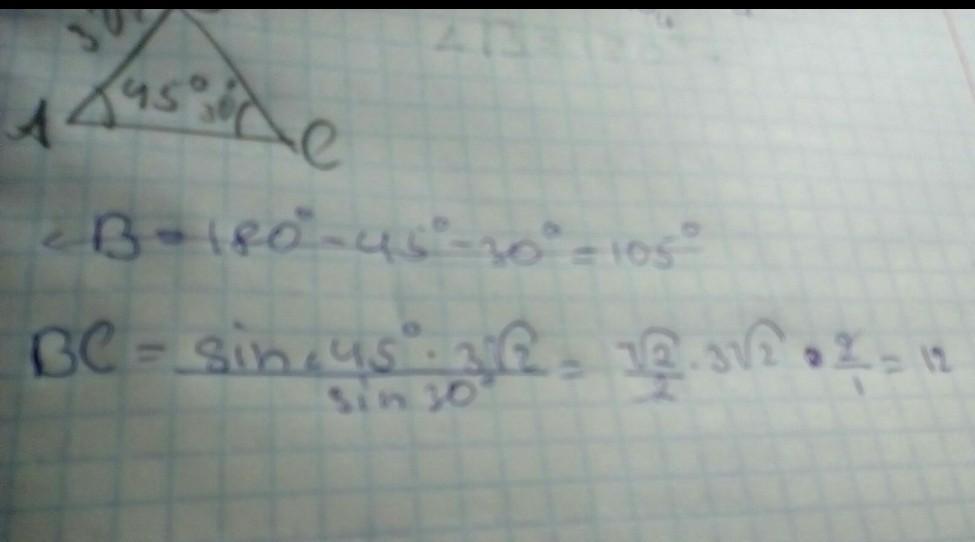 A 45° 30° C
∠B = 180° - 45° - 30° = 105°
BC = \frac{sin∠45° · 3√2}{sin 30°} = \frac{√2}{2} · 3√2 · \frac{2}{1} = 12